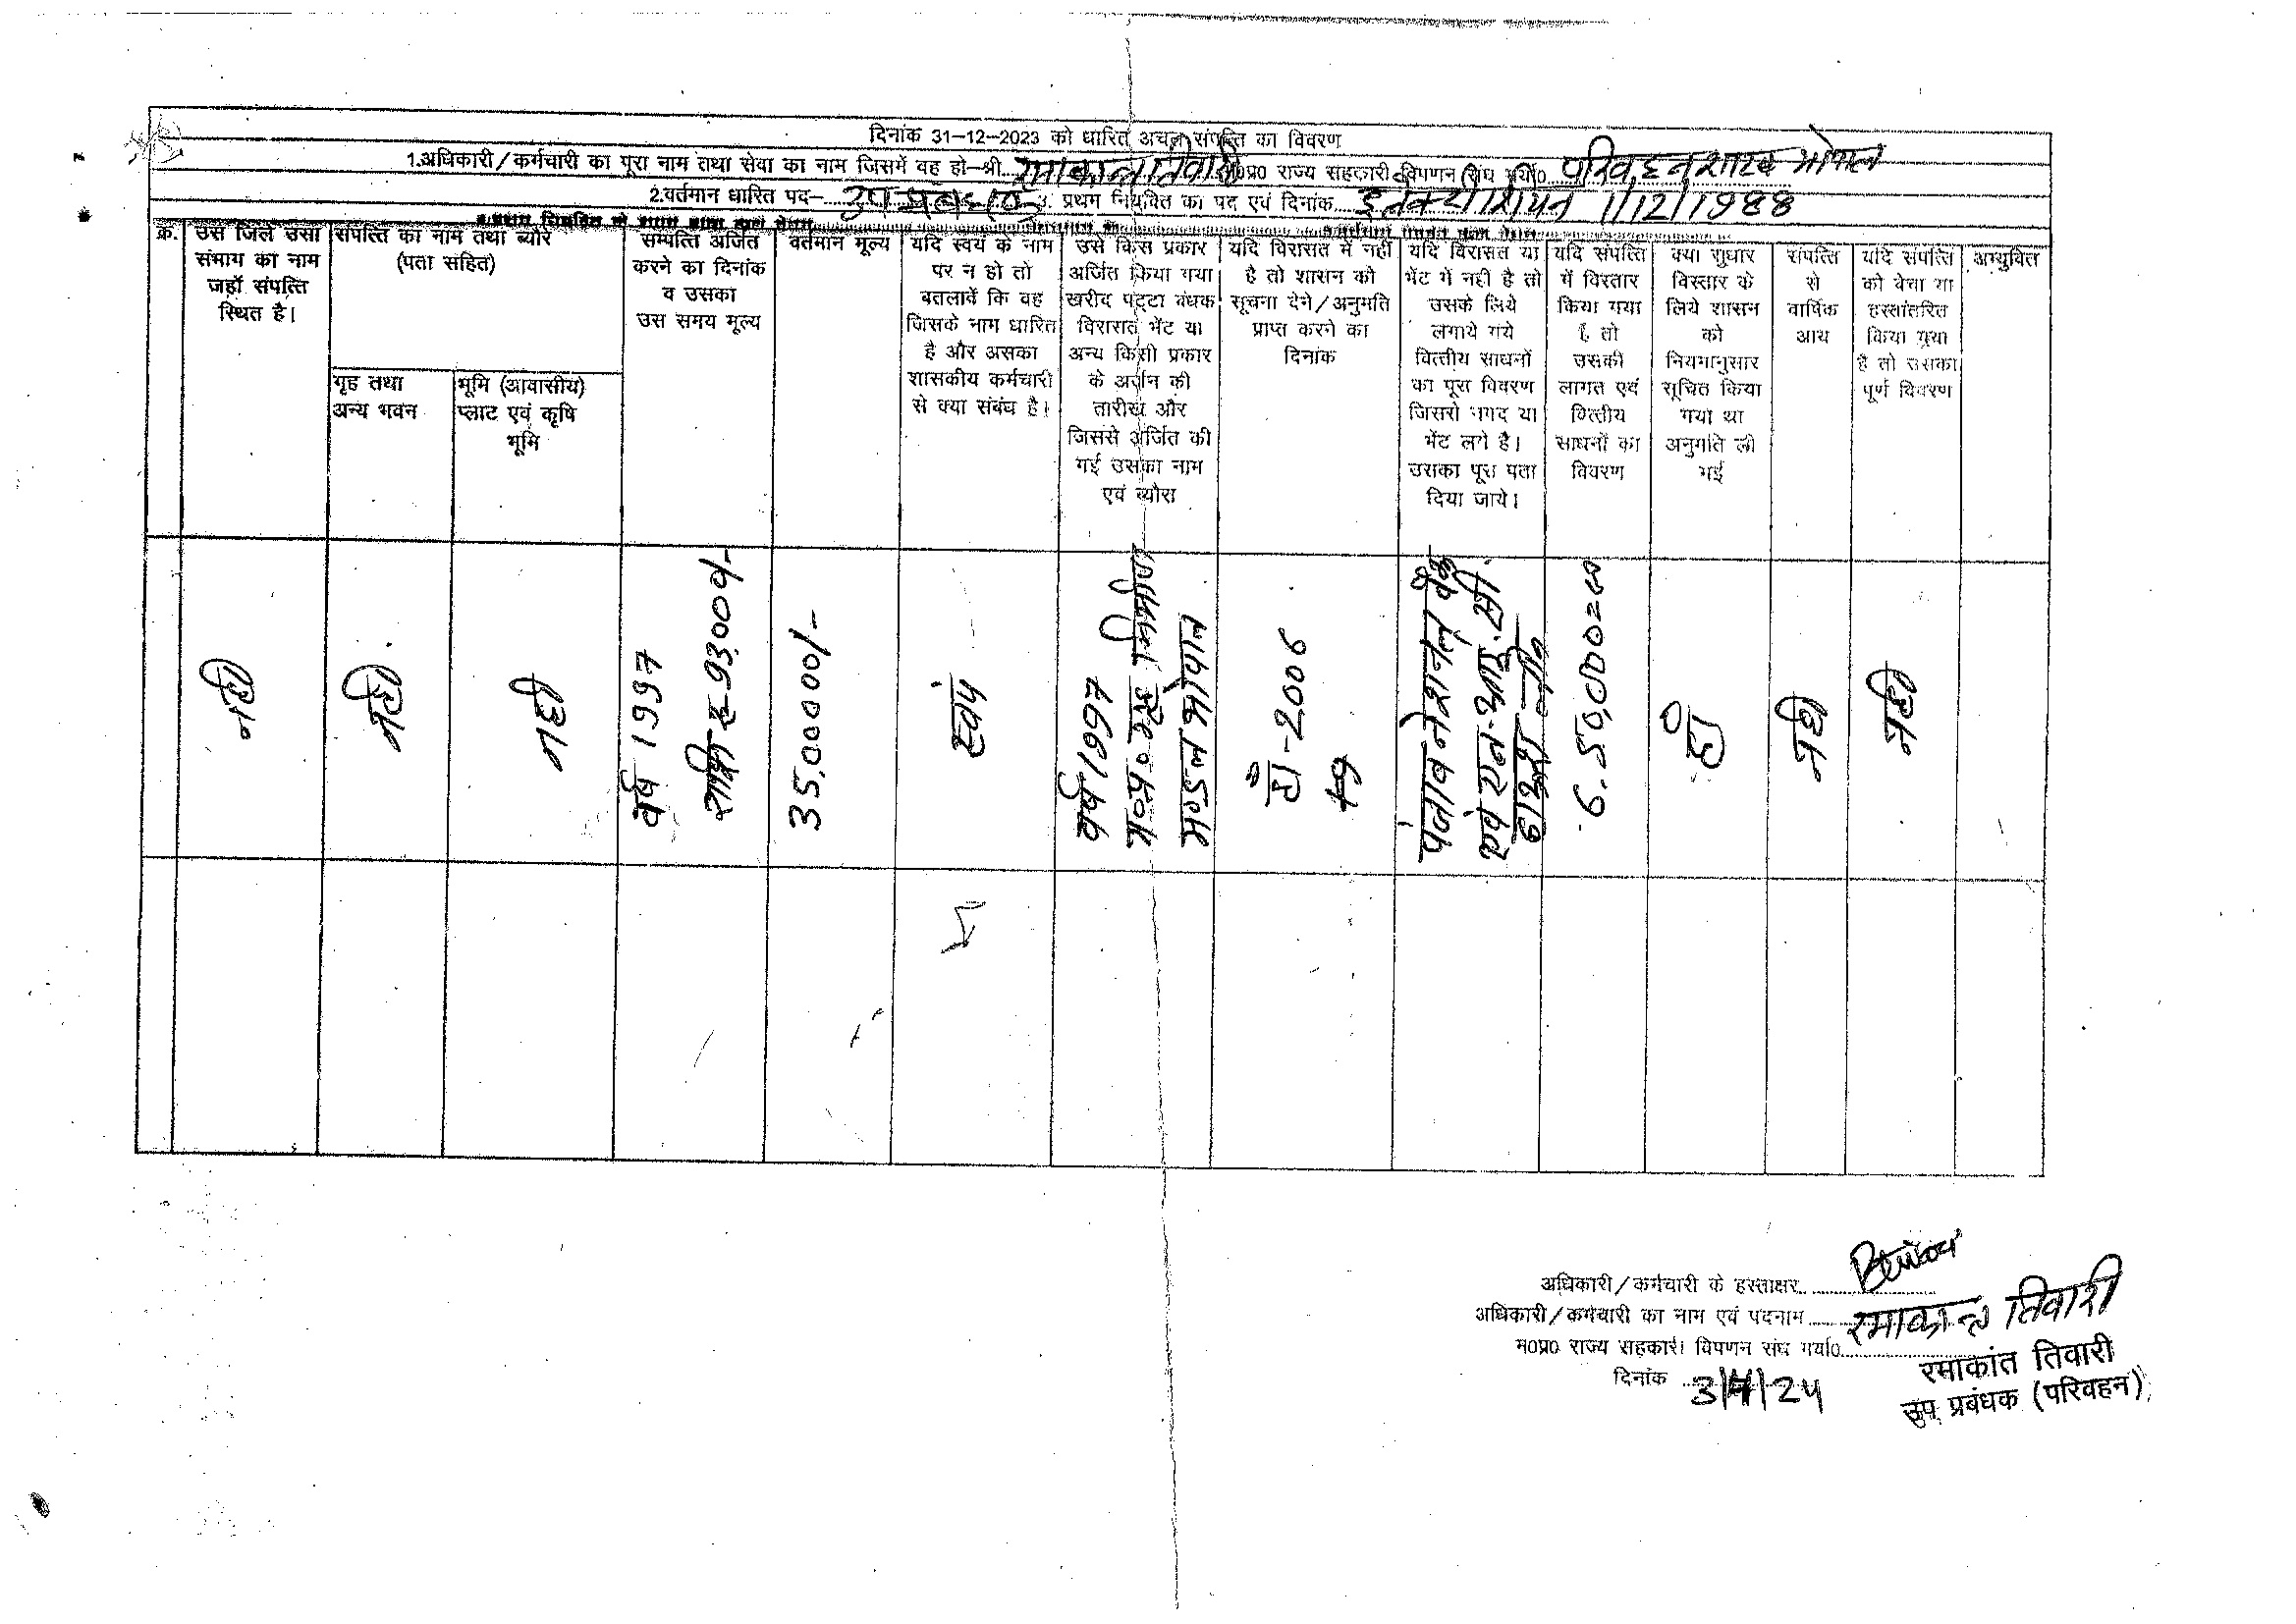 दिनांक 31-12-2023 को धारित अचल संपत्ति का विवरण
1.अधिकारी/कर्मचारी का पूरा नाम तथा सेवा का नाम जिसमें वह हो-श्री रमाकान्त तिवारी म0प्र0 राज्य सहकारी विपणन संघ मर्या0 परिवहन शाखा भोपाल
2.वर्तमान धारित पद- उप प्रबन्धक 3. प्रथम नियुक्ति का पद एवं दिनांक 1/12/1988
क्र.
उस जिले उसा
संभाग का नाम
जहाँ संपत्ति
स्थित है।
संपत्ति का नाम तथा ब्यौरे
(पता सहित)
गृह तथा
अन्य भवन
भूमि (आवासीय)
प्लाट एवं कृषि
भूमि
सम्पत्ति अर्जित
करने का दिनांक
व उसका
उस समय मूल्य
वर्तमान मूल्य
यदि स्वयं के नाम
पर न हो तो
बतलावें कि वह
जिसके नाम धारित
है और असका
शासकीय कर्मचारी
से क्या संबंध है।
उसे किस प्रकार
अर्जित किया गया
खरीद पट्टा बंधक
विरासत भेंट या
अन्य किसी प्रकार
के अर्जन की
तारीख और
जिससे अर्जित की
गई उसका नाम
एवं ब्यौरा
यदि विरासत में नहीं
है तो शासन को
सूचना देने/अनुमति
प्राप्त करने का
दिनांक
यदि विरासत या
भेंट में नहीं है तो
उसके लिये
लगाये गये
वित्तीय साधनों
का पूरा विवरण
जिससे नगद या
भेंट लगे है।
उसका पूरा पता
दिया जाये।
यदि संपत्ति
में विस्तार
किया गया
है तो
उसकी
लागत एवं
वित्तीय
साधनों का
विवरण
क्या सुधार
विस्तार के
लिये शासन
को
नियमानुसार
सूचित किया
गया था
अनुमति ली
गई
संपत्ति
से
वार्षिक
आय
यदि संपत्ति
को बेचा या
हस्तांतरित
किया गया
है तो उसका
पूर्ण विवरण
अभ्युक्ति
नहीं
नहीं
नहीं
वर्ष 1997
राशि रू-93,000/-
35,00000/-
स्वयं
वर्ष 1997
म०प्र० गृह निर्माण
मण्डल भोपाल
हाँ-2006
पंजाब नेशनल बैंक
एवं एल.आई.सी.
हाउस लोन
6.50,000=00
हाँ
नहीं
नहीं
अधिकारी/कर्मचारी के हस्ताक्षर
अधिकारी/कर्मचारी का नाम एवं पदनाम रमाकान्त तिवारी
म0प्र0 राज्य सहकारी विपणन संघ मर्या0
रमाकांत तिवारी
उप प्रबंधक (परिवहन)
दिनांक 3/4/24